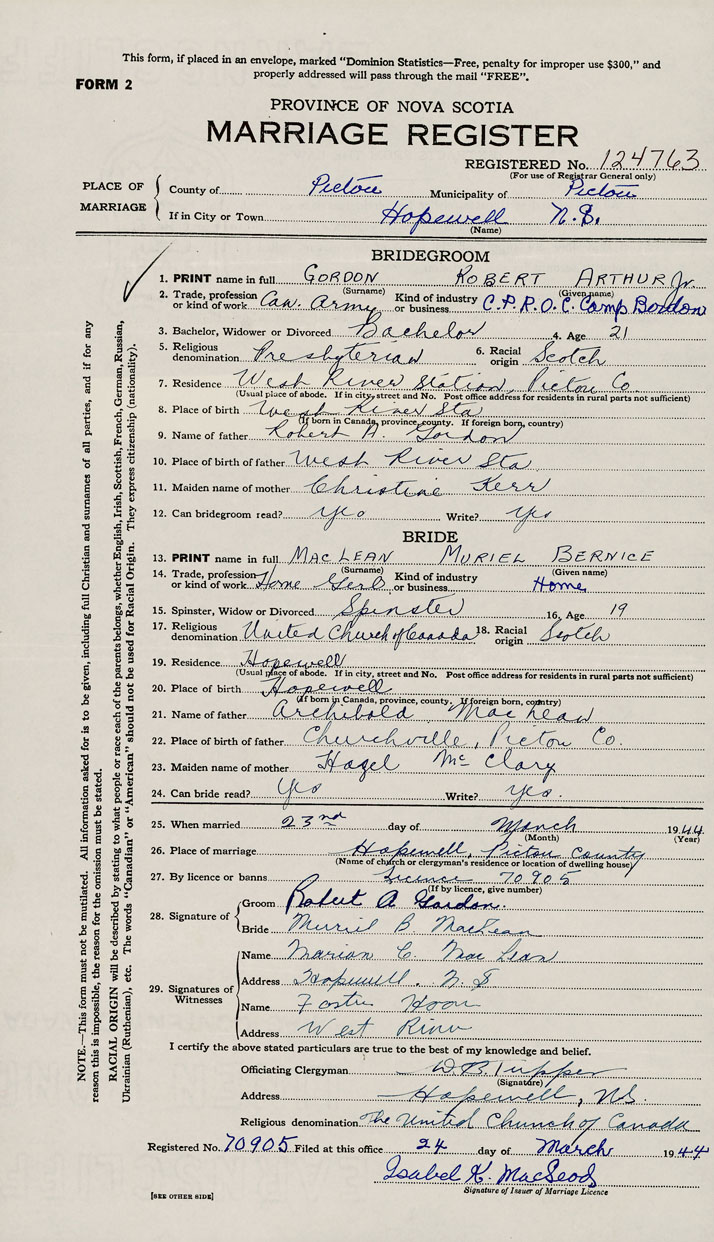 This form, if placed in an envelope, marked "Dominion Statistics—Free, penalty for improper use $300," and
properly addressed will pass through the mail "FREE".
FORM 2
PROVINCE OF NOVA SCOTIA
MARRIAGE REGISTER
REGISTERED No. 124763
(For use of Registrar General only)
PLACE OF MARRIAGE
County of Pictou Municipality of Pictou
If in City or Town Hopewell N.S.
(Name)
BRIDEGROOM
1. PRINT name in full GORDON ROBERT ARTHUR Jr.
(Surname) (Given name)
2. Trade, profession or kind of work Can. Army Kind of industry or business C.P.R.O.C. Camp Bordon
3. Bachelor, Widower or Divorced Bachelor 4. Age 21
5. Religious denomination Presbyterian 6. Racial origin Scotch
7. Residence West River Station, Pictou Co.
(Usual place of abode. If in city, street and No. Post office address for residents in rural parts not sufficient)
8. Place of birth West River Sta
(If born in Canada, province, county. If foreign born, country)
9. Name of father Robert A. Gordon
10. Place of birth of father West River Sta
11. Maiden name of mother Christine Kerr
12. Can bridegroom read? yes Write? yes
BRIDE
13. PRINT name in full MACLEAN MURIEL BERNICE
(Surname) (Given name)
14. Trade, profession or kind of work Home Girl Kind of industry or business Home
15. Spinster, Widow or Divorced Spinster 16. Age 19
17. Religious denomination United Church of Canada 18. Racial origin Scotch
19. Residence Hopewell
(Usual place of abode. If in city, street and No. Post office address for residents in rural parts not sufficient)
20. Place of birth Hopewell
(If born in Canada, province, county. If foreign born, country)
21. Name of father Archibald MacLean
22. Place of birth of father Churchville, Pictou Co.
23. Maiden name of mother Hazel McClary
24. Can bride read? Yes Write? Yes.
25. When married 23rd day of March 1944
(Month) (Year)
26. Place of marriage Hopewell, Pictou County
(Name of church or clergyman's residence or location of dwelling house)
27. By licence or banns Licence 70905
(If by licence, give number)
28. Signature of Groom Robert A Gordon.
Bride Muriel B MacLean
29. Signatures of Witnesses
Name Marian C. MacLean
Address Hopewell. N.S
Name
Address West River
I certify the above stated particulars are true to the best of my knowledge and belief.
Officiating Clergyman W B Tupper
(Signature)
Address Hopewell, N.S.
Religious denomination The United Church of Canada
Registered No. 70905 Filed at this office 24 day of March 1944
Isabel K. MacLeod
Signature of Issuer of Marriage Licence
[SEE OTHER SIDE]
NOTE.—This form must not be mutilated. All information asked for is to be given, including full Christian and surnames of all parties, and if for any
reason this is impossible, the reason for the omission must be stated.
RACIAL ORIGIN will be described by stating to what people or race each of the parents belongs, whether English, Irish, Scottish, French, German, Russian,
Ukrainian (Ruthenian), etc. The words "Canadian" or "American" should not be used for Racial Origin. They express citizenship (nationality).